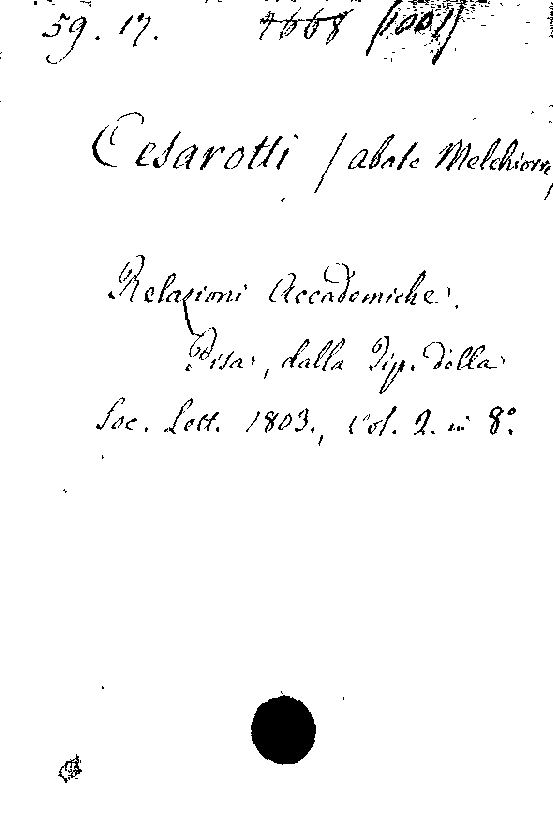 59. 17. 4668 (1001)
Cesarotti (abate Melchiorre)
Relazioni Accademiche.
Pisa, dalla Tip. della
Soc. Lett. 1803., Vol. 2. in 8º.